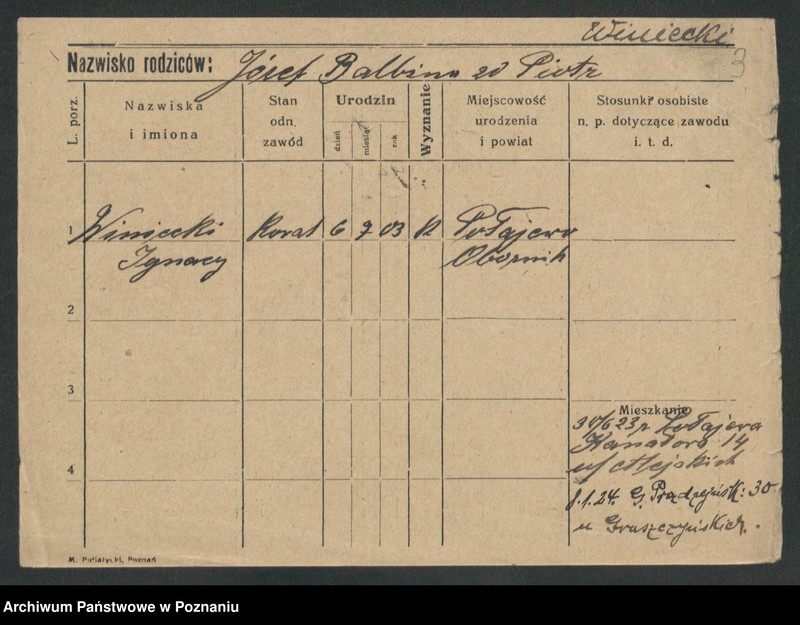 Winiecki
3
Nazwisko rodziców: Józef Balbina zd Piotr
L. porz.
Nazwiska i imiona
Stan odn. zawód
Urodzin
dzień
miesiąc
rok
Wyznanie
Miejscowość urodzenia i powiat
Stosunki osobiste n. p. dotyczące zawodu i. t. d.
1 Winiecki Kowal 6 7 03 k Połajewo
Ignacy Obornik
2
3
Mieszkanie
30/6 23 r. Połajewa
14
4
8.1.24. G. Prądzyńsk: 30
u Gruszczyńskich.
M. Putiatycki, Poznań
Archiwum Państwowe w Poznaniu